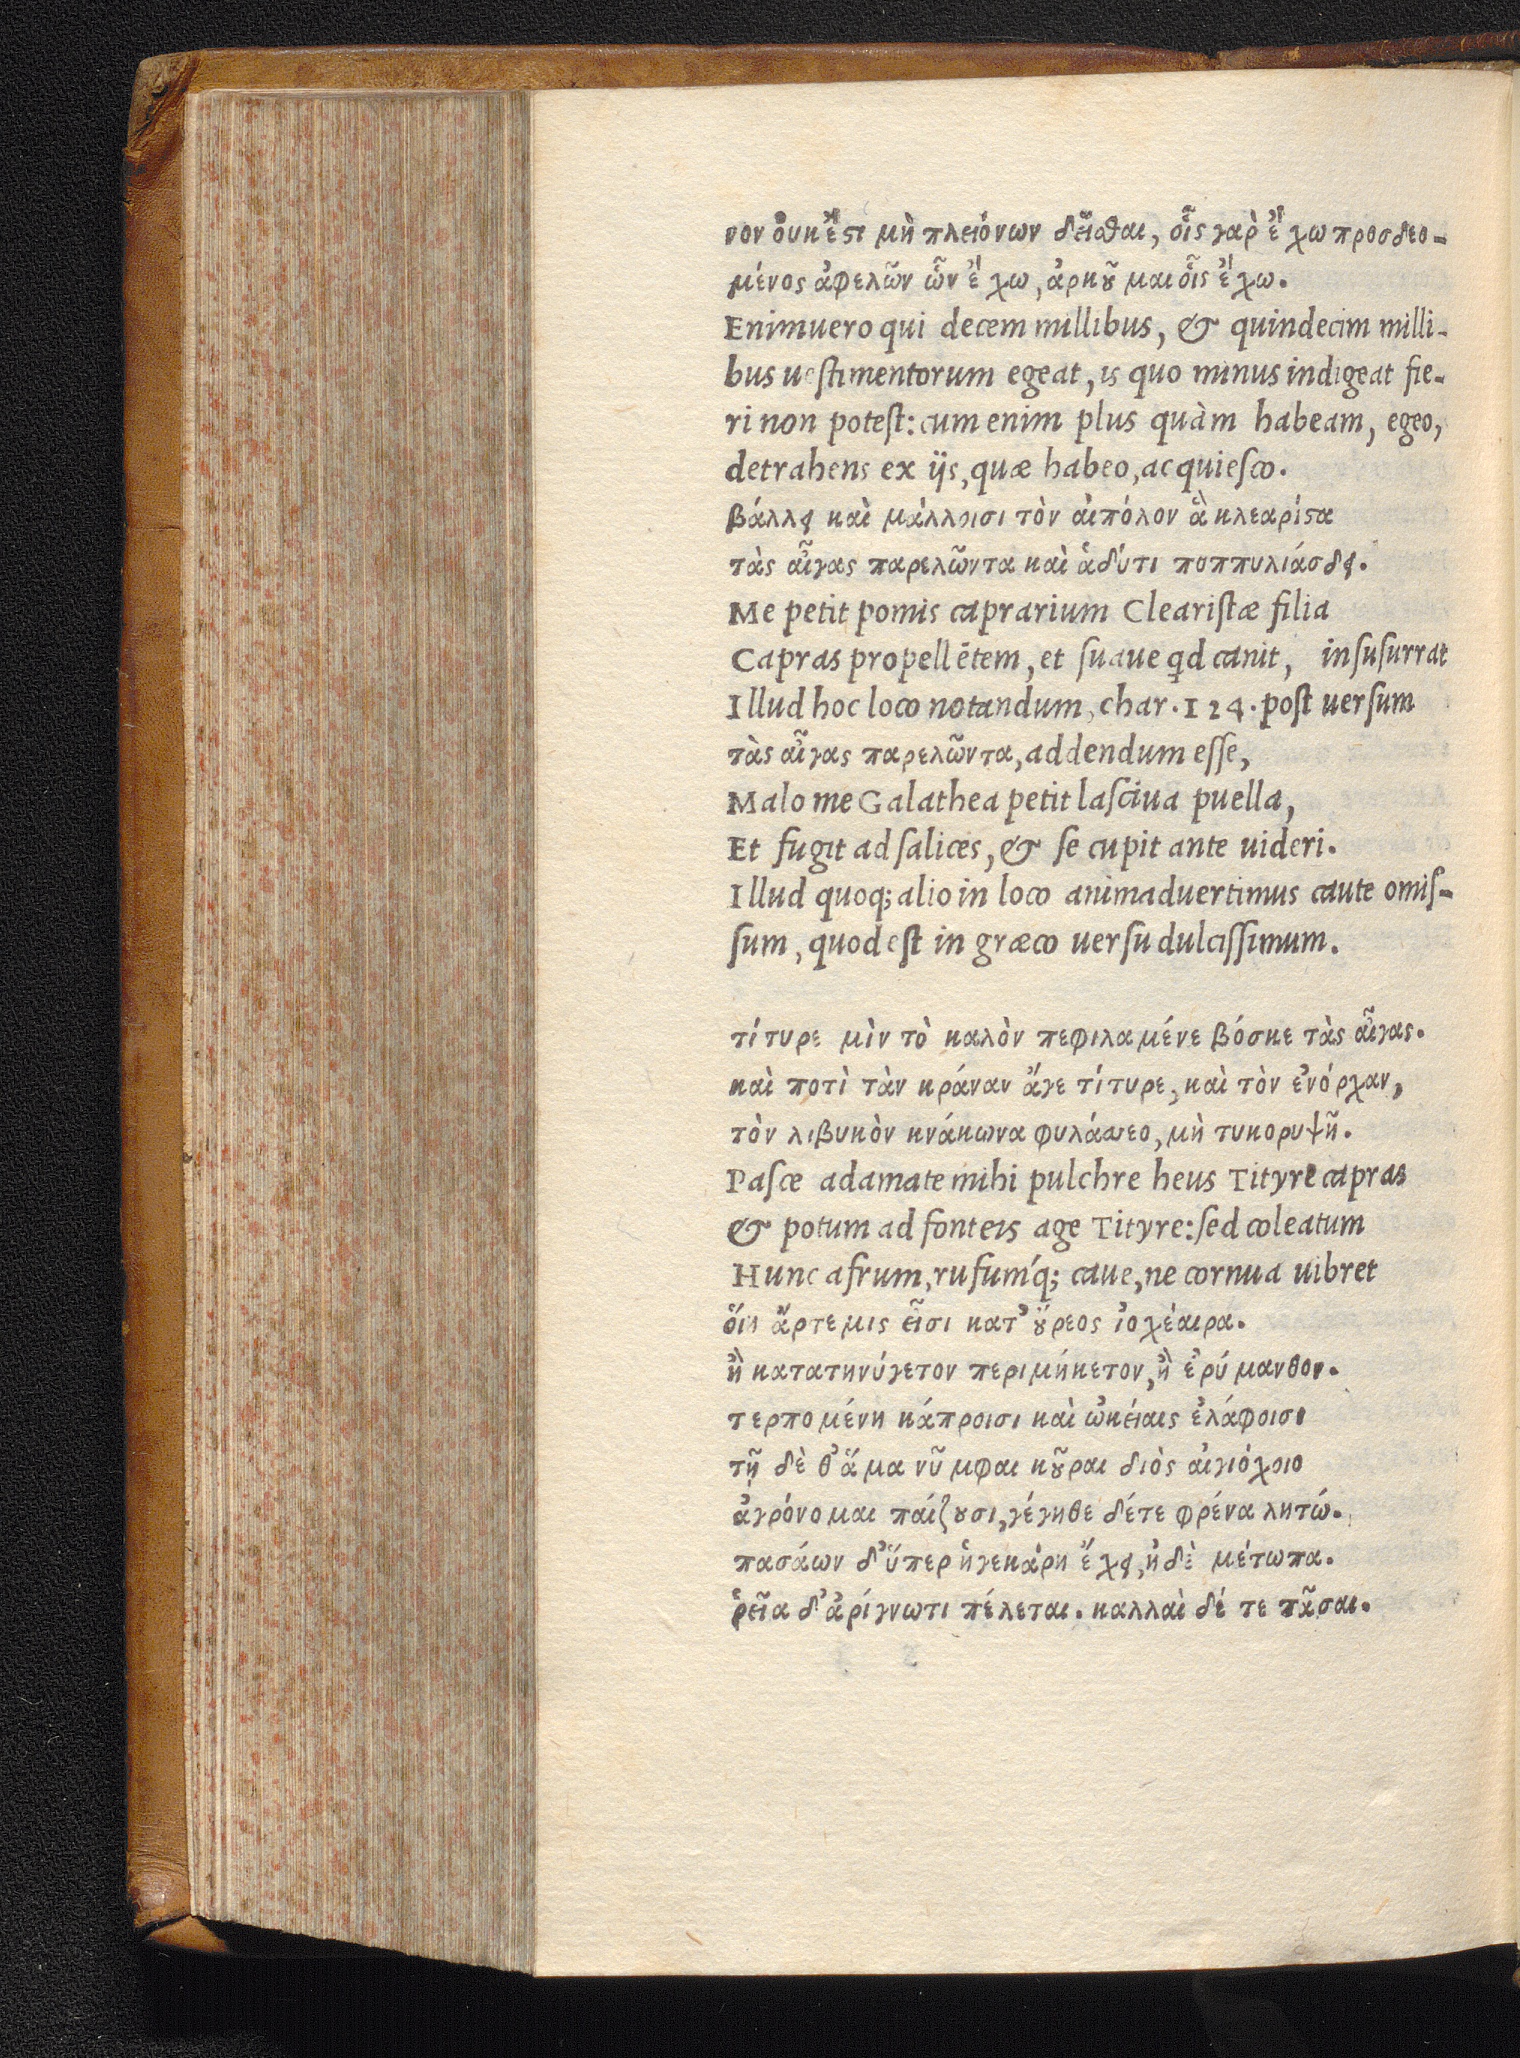 νον ὀυκἔστ μὴ πλειόνων δεῖσθαι, οἷς γαρ̀ ἔχω προσδεο-
μένος ἀφελῶν ὧν ἔχω, ἀρκοῦμαι οἷς ἔχω.
Enimuero qui decem millibus, & quindecim milli-
bus uestimentorum egeat, is quo minus indigeat fie-
ri non potest: cum enim plus quàm habeam, egeo,
detrahens ex ijs, quæ habeo, acquiesco.
βάλλει καὶ μάλλοισι τὸν αἰπόλον ἃ κλεαρίστα
τὰς αἶγας παρελῶντα καὶ ἁδύτι ποππυλιάσδει.
Me petit pomis caprarium Clearistæ filia
Capras propellētem, et suaue qd canit, insusurrat
Illud hoc loco notandum, char. 124. post uersum
τὰς αἶγας παρελῶντα, addendum esse,
Malo me Galathea petit lasciua puella,
Et fugit ad salices, & se cupit ante uideri.
Illud quoq; alio in loco animaduertimus caute omis-
sum, quod est in græco uersu dulcissimum.
τίτυρε μὶν τὸ καλὸν πεφιλαμένε βόσκε τὰς αἶγας.
καὶ ποτὶ τὰν κράναν ἄγε τίτυρε, καὶ τὸν ἐνόρχαν,
τὸν λιβυκὸν κνάκωνα φυλάσσεο, μὴ τυκορυψῇ.
Pasce adamate mihi pulchre heus Tityre capras
& potum ad fonteis age Tityre: sed coleatum
Hunc afrum, rufumq́; caue, ne cornua uibret
ὅιη ἄρτεμις εἶσι κατ᾽ οὔρεος ἰοχέαιρα.
ἢ κατατηνύγετον περιμήκετον, ἢ ἐρύμανθον.
τερπομένη κάπροισι καὶ ὠκείαις ἐλάφοισι
τῇ δὲ θ᾽ἅμα νῦμφαι κοῦραι διὸς αἰγιόχοιο
ἀγρόνομαι παίζουσι, γέγηθε δέτε φρένα λητώ.
πασάων δ᾽ὕπερ ἡγεκάρη ἔχει, ἠδὲ μέτωπα.
ῥεῖα δ᾽ἀρίγνωτι πέλεται. καλλαὶ δέ τε πᾶσαι.